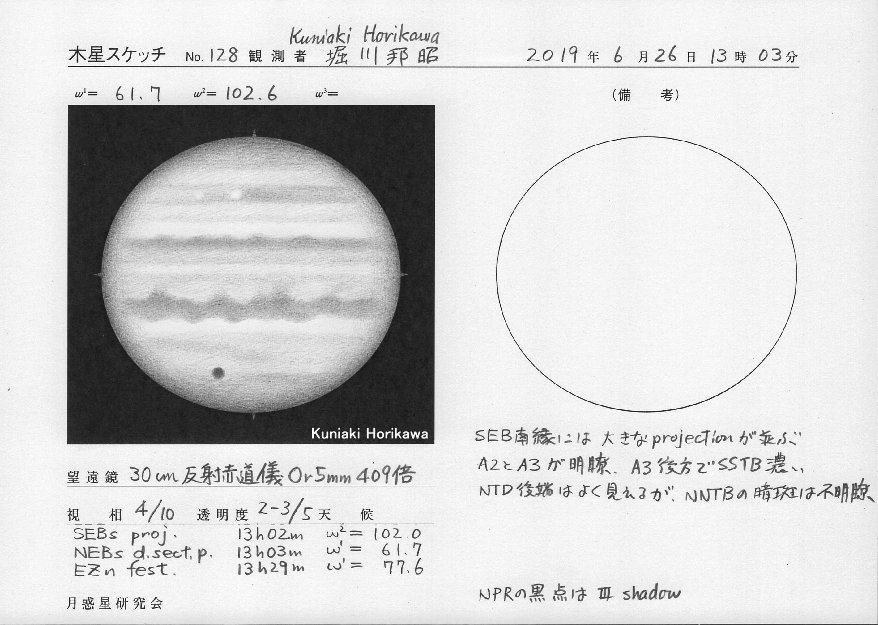 Kuniaki Horikawa
木星スケッチ No. 128 観測者 堀川邦昭 2019年 6月 26日 13時 03分
ω¹= 61.7 ω²= 102.6 ω³=
(備 考)
Kuniaki Horikawa
SEB南縁には大きなprojectionが並ぶ
A2とA3が明瞭、A3後方でSSTB濃い
NTD後端はよく見えるが、NNTBの暗斑は不明瞭
望遠鏡 30cm反射赤道儀 Or5mm 409倍
視 相 4/10 透明度 2-3/5 天 候
SEBs proj. 13h02m ω²= 102.0
NEBs d.sect.p. 13h03m ω¹= 61.7
EZn fest. 13h29m ω¹= 77.6
NPRの黒点は III shadow
月惑星研究会